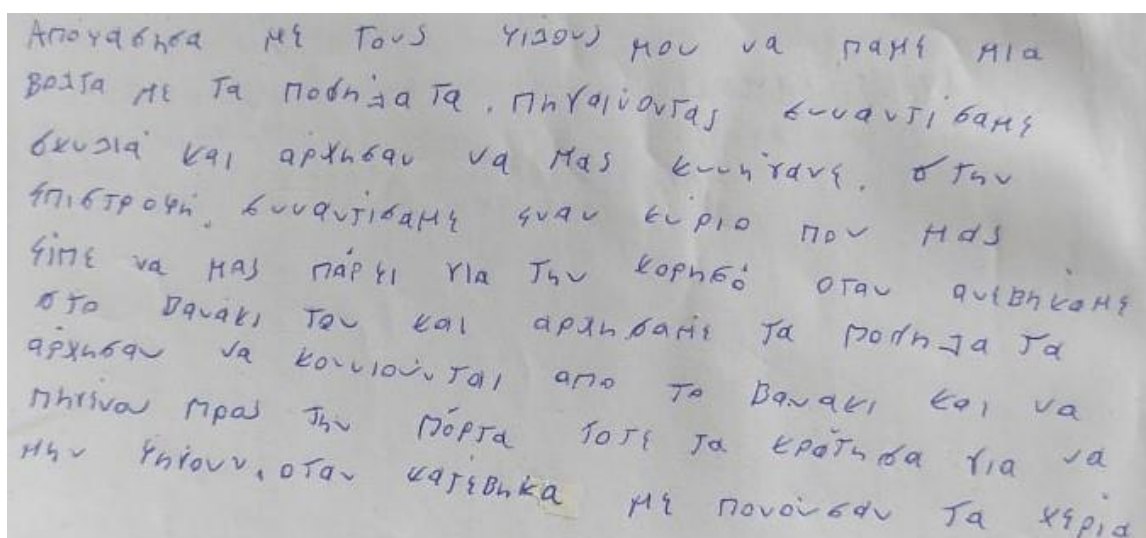 Αποφασησα με τους φιλους μου να παμε μια
βολτα με τα ποδηλατα. πηγαινοντας συναντίσαμε
σκυλιά και αρχησαν να μας κυνηγανε. στην
επιστροφή. συναντισαμε εναν κύριο που μας
είπε να μας πάρει για την κορησό οταν ανεβηκαμε
στο βανάκι του και αρχησαμε τα ποδηλατα
αρχησαν να κουνιούνται απο το βανακι και να
πηγενουν προς την πόρτα τοτε τα κράτησα για να
μην φηγουν. οταν κατεβηκα με πονούσαν τα χερια